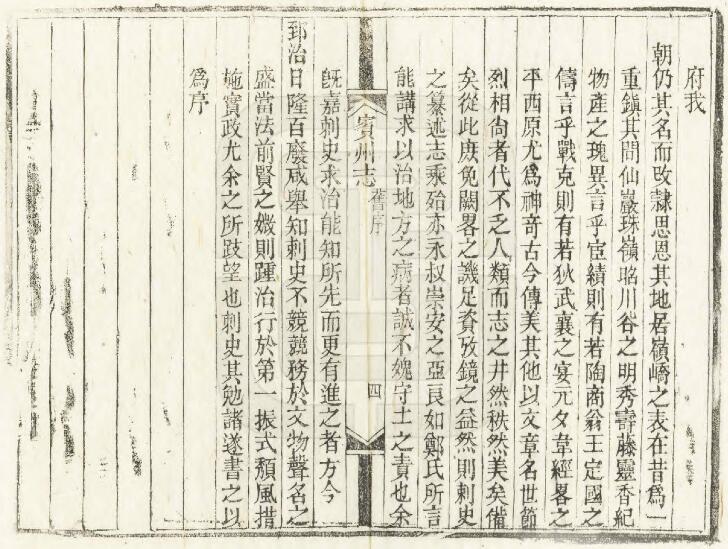 府我
朝仍其名而改隷思恩其地居嶺嶠之表在昔爲一
重鎮其問仙巖珠嶺暘川谷之明秀壽藤靈香紀
物產之瑰異言乎宦績則有若陶商翁王定國之
儔言乎戰克則有若狄武襄之宴元夕韋經畧之
平西原尤爲神奇古今傳美其他以文章名世節
烈相尙者代不乏人類而志之井然秩然美矣備
矣從此庶免闕畧之譏足資攷鏡之益然則刺史
之纂述志乘殆亦永叔崇安之亞良如鄭氏所言
能講求以治地方之病者誠不媿守土之責也余
賓州志
舊序
四
旣嘉刺史求治能知所先而更有進之者方今
郅治日隆百廢咸舉知刺史不競競務於文物聲名之
盛當法前賢之媺則踵治行於第一振式頽風措
施實政尤余之所跂望也刺史其勉諸遂書之以
爲序